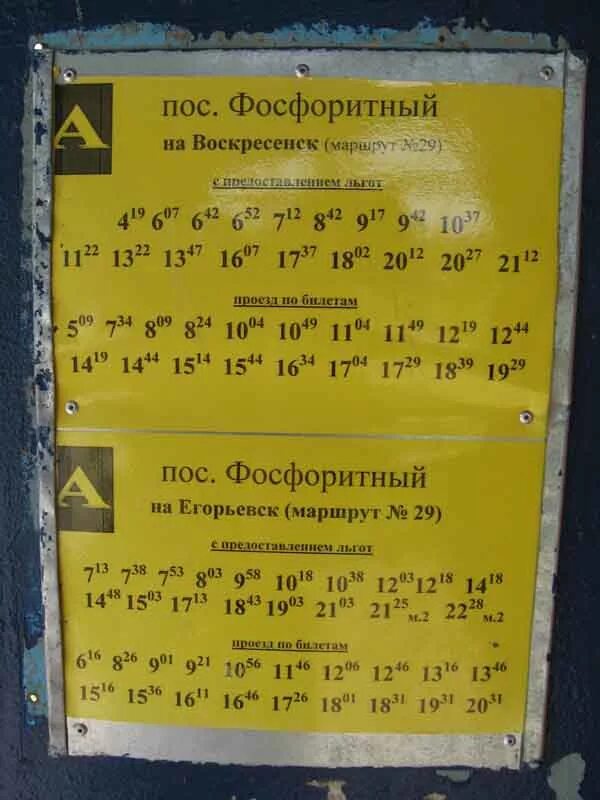 А
пос. Фосфоритный
на Воскресенск (маршрут №29)
с предоставлением льгот
4¹⁹ 6⁰⁷ 6⁴² 6⁵² 7¹² 8⁴² 9¹⁷ 9⁴² 10³⁷
11²² 13²² 13⁴⁷ 16⁰⁷ 17³⁷ 18⁰² 20¹² 20²⁷ 21¹²
проезд по билетам
5⁰⁹ 7³⁴ 8⁰⁹ 8²⁴ 10⁰⁴ 10⁴⁹ 11⁰⁴ 11⁴⁹ 12¹⁹ 12⁴⁴
14¹⁹ 14⁴⁴ 15¹⁴ 15⁴⁴ 16³⁴ 17⁰⁴ 17²⁹ 18³⁹ 19²⁹
А
пос. Фосфоритный
на Егорьевск (маршрут № 29)
с предоставлением льгот
7¹³ 7³⁸ 7⁵³ 8⁰³ 9⁵⁸ 10¹⁸ 10³⁸ 12⁰³ 12¹⁸ 14¹⁸
14⁴⁸ 15⁰³ 17¹³ 18⁴³ 19⁰³ 21⁰³ 21²⁵ м.2 22²⁸ м.2
проезд по билетам
6¹⁶ 8²⁶ 9⁰¹ 9²¹ 10⁵⁶ 11⁴⁶ 12⁰⁶ 12⁴⁶ 13¹⁶ 13⁴⁶
15¹⁶ 15³⁶ 16¹¹ 16⁴⁶ 17²⁶ 18⁰¹ 18³¹ 19³¹ 20³¹